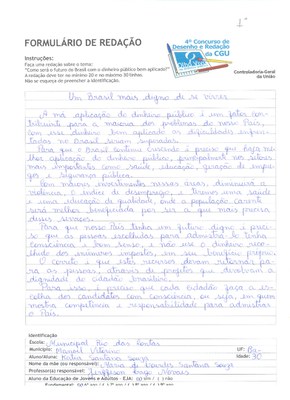 1º
FORMULÁRIO DE REDAÇÃO
4º Concurso de
Desenho e Redação
da CGU
Controladoria-Geral
da União
Instruções:
Faça uma redação sobre o tema:
"Como será o futuro do Brasil com o dinheiro público bem aplicado?"
A redação deve ter no mínimo 20 e no máximo 30 linhas.
Não se esqueça de preencher a identificação.
Um Brasil mais digno de se viver
A má aplicação do dinheiro público é um fator con-
tribuinte para a maioria dos problemas do nosso País,
com esse dinheiro bem aplicado as dificuldades enfren-
tadas no Brasil seriam superadas.
Para que o Brasil continue crescendo é preciso que haja me-
lhor aplicação do dinheiro público, principalmente nos setores
mais importantes como saúde, educação, geração de empre-
gos e segurança pública.
Com maiores investimentos nessas áreas, diminuiria a
violência, o índice de desemprego, e teríamos uma saúde
e uma educação de qualidade, onde a população carente
será melhor beneficiada por ser a que mais precisa
desses serviços.
Para que nosso País tenha um futuro digno é preci-
so que as pessoas escolhidas para administrá-lo tenha
consciência e bom senso, e não use o dinheiro reco-
lhido dos inúmeros impostos, em seu benefício próprio.
O correto é que estes recursos devam retornar pa-
ra as pessoas, através de projetos que devolvam a
dignidade do cidadão brasileiro.
Para isso, é preciso que cada cidadão faça a es-
colha dos candidatos com consciência, ou seja, em quem
mostra competência e responsabilidade para administrar
o País.
Identificação
Escola: Municipal Rio das Contas
Município: Manoel Vitorino UF: Ba
Aluno/Aluna: Santana Souza Idade: 30
Nome da mãe (ou responsável): Maria de Lourdes Santana Souza
Professor(es) responsável(eis): Novais
Aluno da Educação de Jovens e Adultos - EJA: (X) sim ( ) não